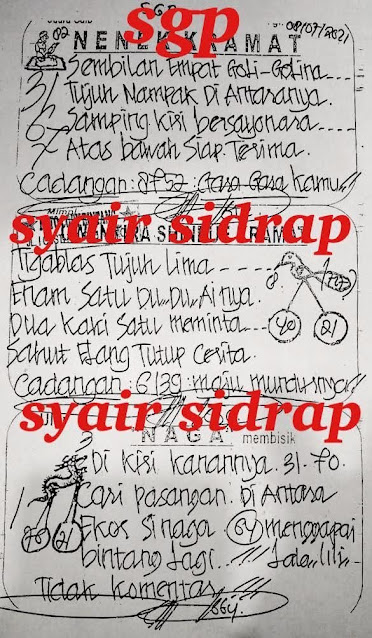 SGP
82 NENEK KRAMAT 08/07/2021
sgp
Sembilan Empat Goti-Gotina
Tujuh Nampak Di Antaranya.
Samping Kisi bersayonara
Atas bawah Siap Terima.
Cadangan: 8752: Gasa Gasa Kamu!!
syair sidrap
KRAMAT
Tigablas Tujuh Lima
Enam Satu Du..Du.. Ainya.
Dua Kaki Satu meminta
Sahut Elang Tutup Cerita.
40 21
Cadangan: 6139: maju mundurnya!!
syair sidrap
NAGA membisik
Di Kisi Kanannya. 31-70.
Cari pasangan. Di Antara
Ekos Sinaga 64 menggapai
bintang Lagi...!!! Lala..lili..
70 21
Tidak komentar